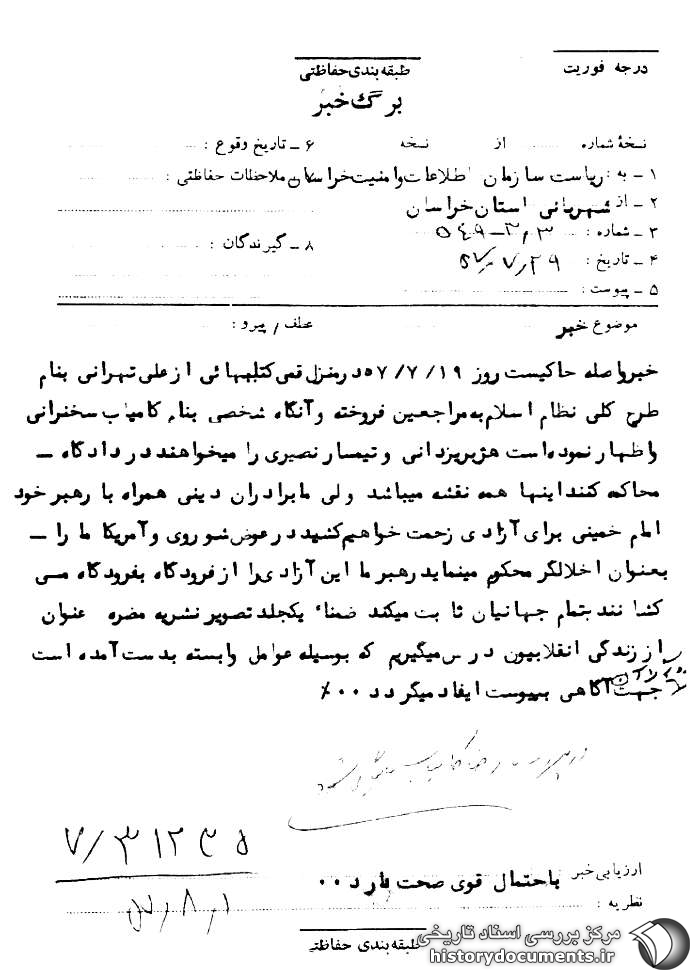 درجه فوریت
طبقه بندی حفاظتی
برگ خبر
نسخهٔ شماره از نسخه
۶ ـ تاریخ وقوع :
۱ ـ به : ریاست سازمان اطلاعات وامنیت خراسان
ملاحظات حفاظتی :
۲ ـ از شهربانی استان خراسان
۳ ـ شماره : ۳/۳ــ۵۴۹
۸ ـ گیرندگان :
۴ ـ تاریخ : ۵۷/۷/۲۹
۵ ـ پیوست :
موضوع خبر
عطف / پیرو :
خبرواصله حاکیست روز ۵۷/۷/۱۹ درمنزل قمی کتابهائی ازعلی تهرانی بنام
طرح کلی نظام اسلام به مراجعین فروخته وآنگاه شخصی بنام کامیاب سخنرانی
واظهارنموده است هژبریزدانی وتیمسارنصیری را میخواهند دردادگاه ــ
محاکمه کنند اینها همه نقشه میباشد ولی مابرادران دینی همراه با رهبرخود
امام خمینی برای آزادی زحمت خواهیم کشید درعوض شوروی وآمریکا ما را ــ
بعنوان اخلالگر محکوم مینماید رهبرما این آزادی را ازفرودگاه بفرودگاه می
کشانند بتمام جهانیان ثابت میکند ضمناً یکجلد تصویرنشریه مضره عنوان
اززندگی انقلابیون درس میگیریم که بوسیله عوامل وابسته بدست آمده است
جهت آگاهی بپیوست ایفاد میگردد ۰۰٪
۷/۳۱۲۳۵
ارزیابی خبر باحتمال قوی صحت دارد ۰۰
نظریه :
طبقه بندی حفاظتی
مرکز بررسی اسناد تاریخی
historydocuments.ir